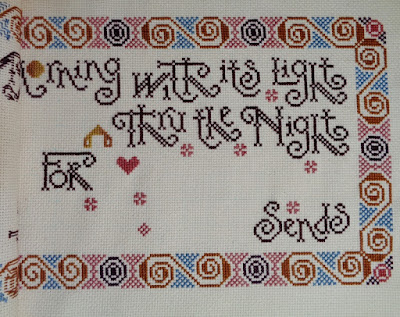 Morning with its Light
Thru the Night
For
Sends